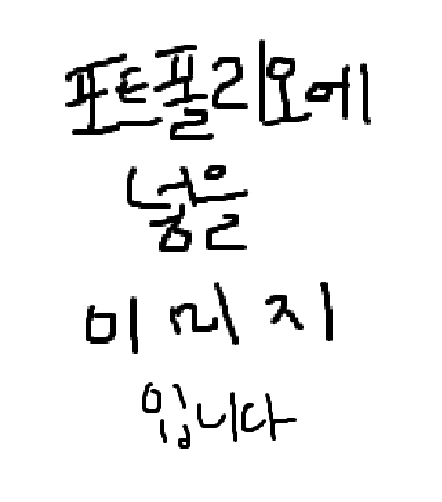 포트폴리오에
넣을
이미지
입니다